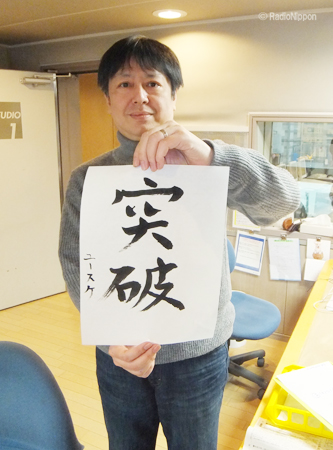 © RadioNippon
STUDIO
1
突破
ユースケ